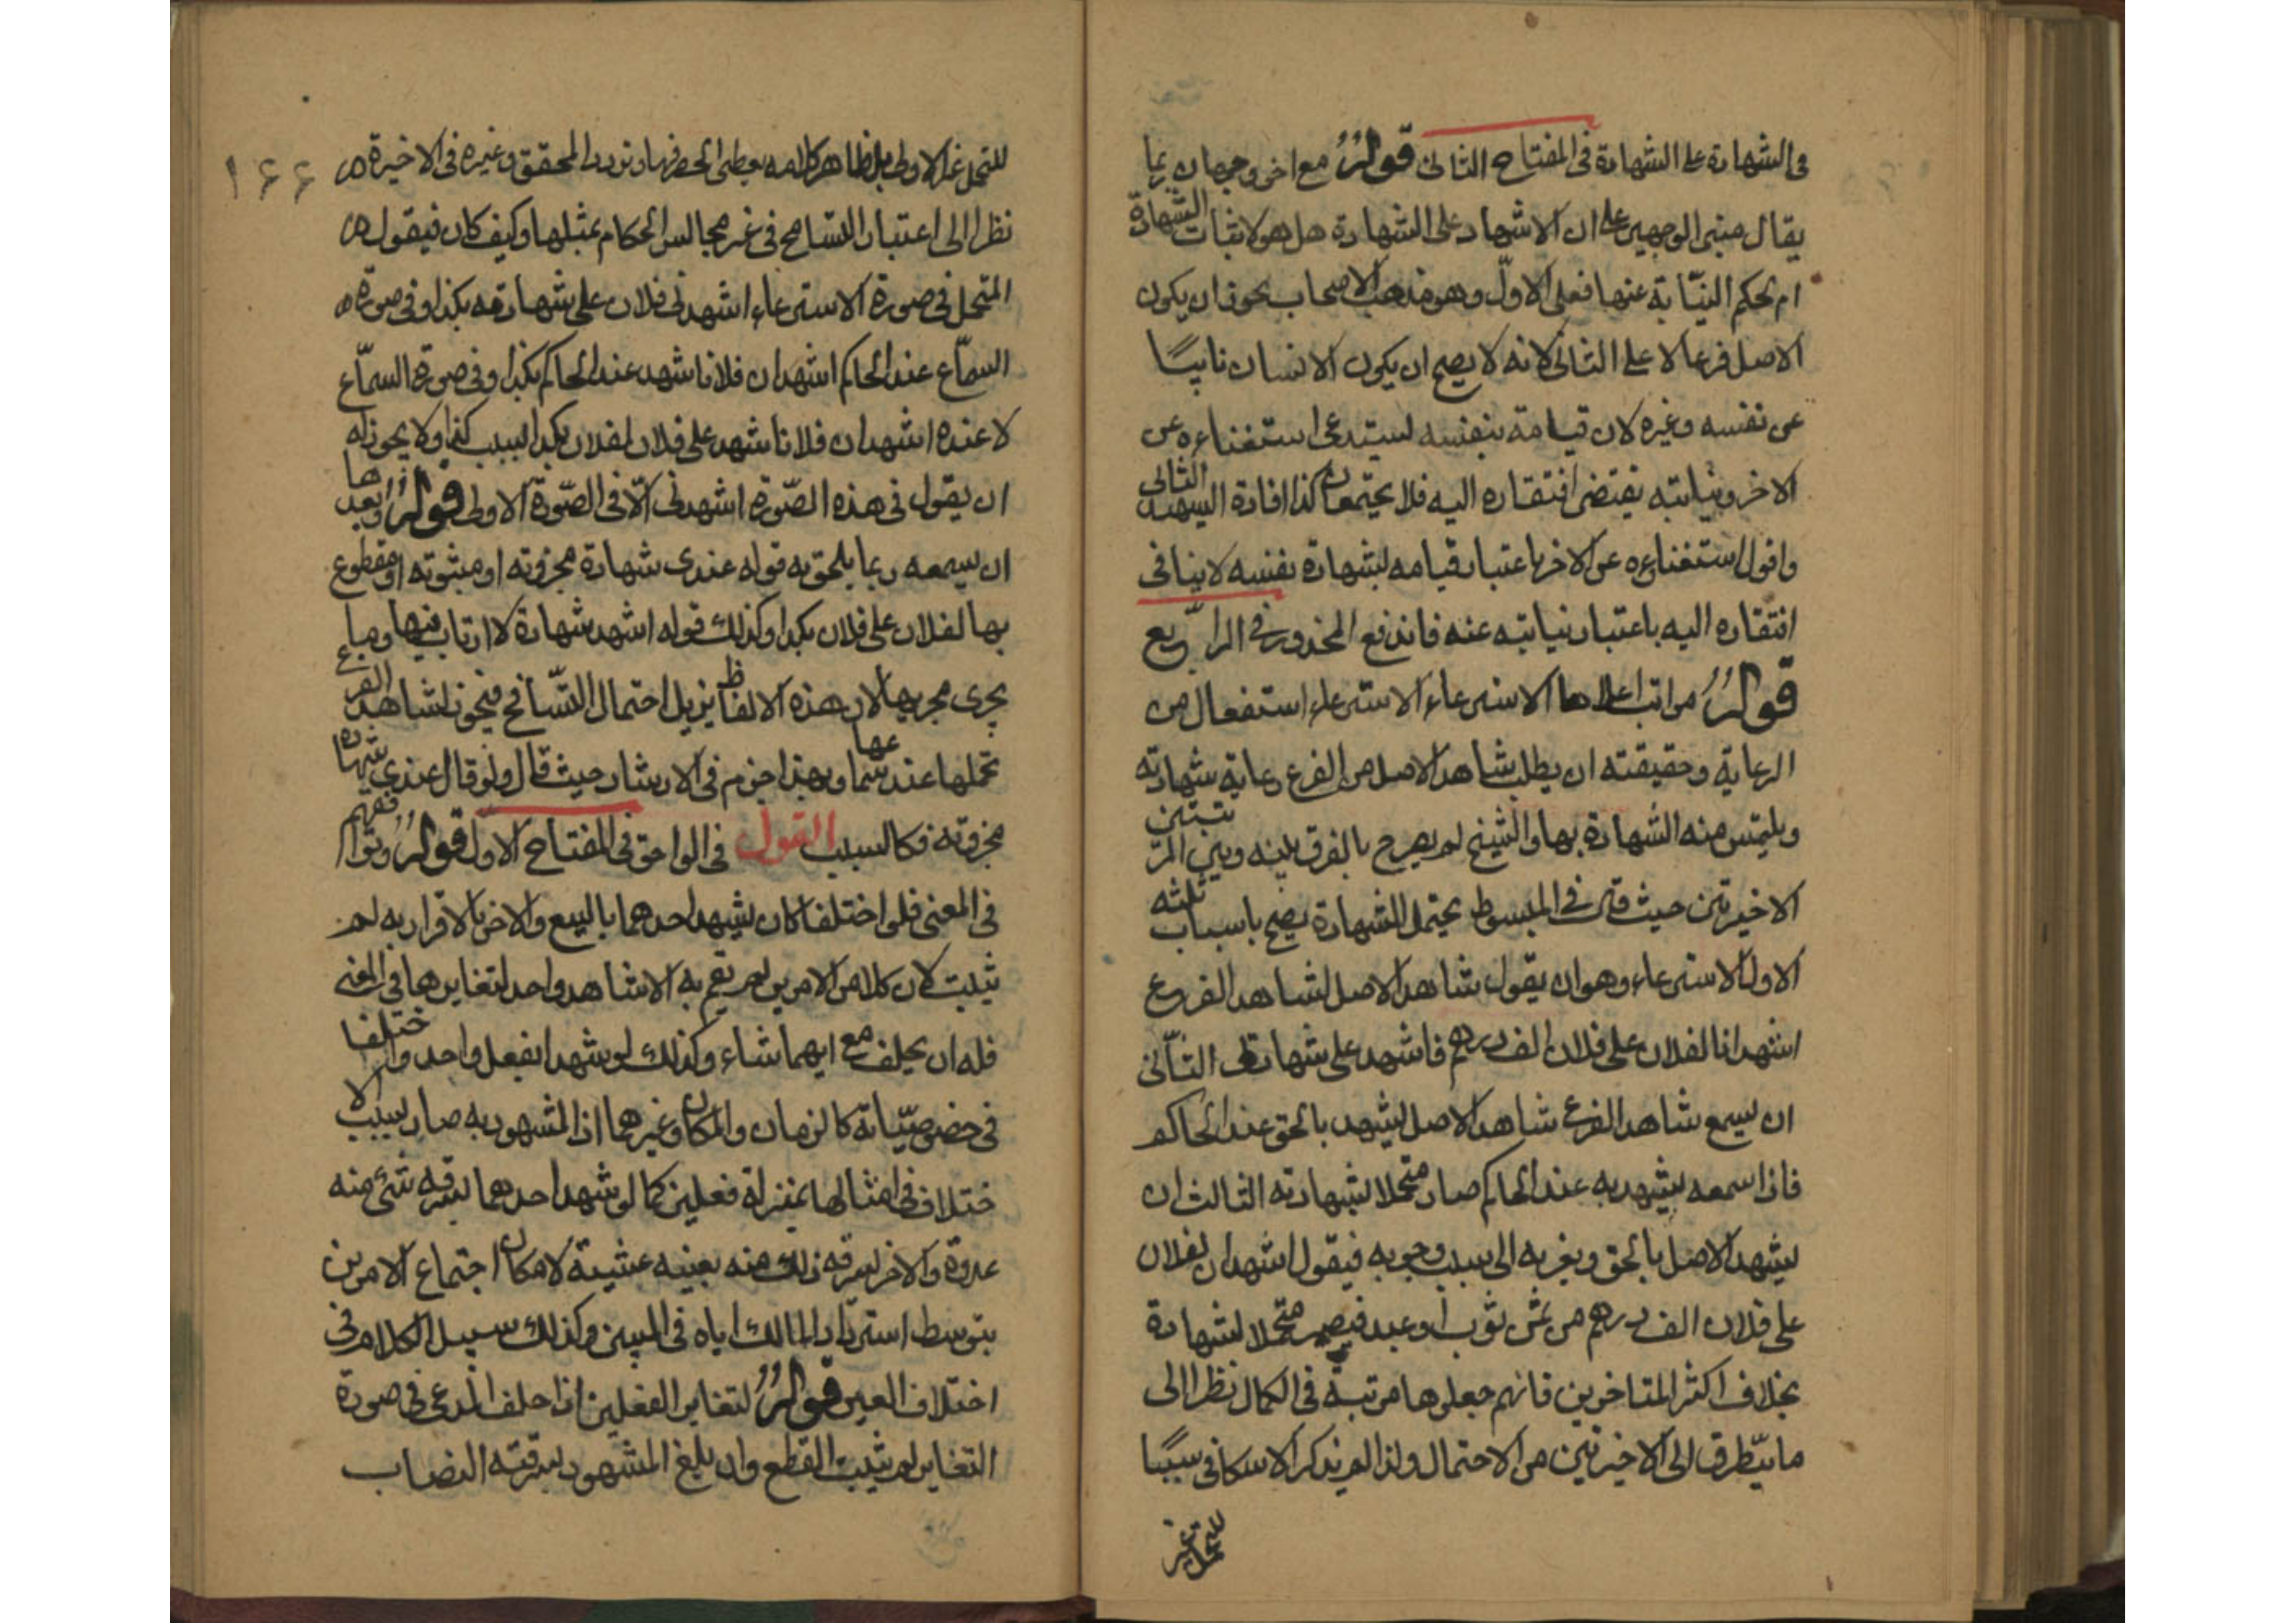 فى الشهادة على الشهادة فى المفتاح الثانى قولُهُ مع اخر وجهان ربما
يقال مبنى الوجهين على ان الاشهاد على الشهادة هل هو لاثبات الشهادة
ام بحكم النيابة عنها فعلى الاوّل وهو مذهب الاصحاب يجوز ان يكون
الاصل فرعا لا على الثانى لانه لا يصح ان يكون الانسان نايبًا
عن نفسه وغيره لان قيامة بنفسه ليستدعى استغناءه عن
الاخر ونيابته يقتضى افتقاره اليه فلا يجتمعان كذا افادة الشهيد الثانى
واقول استغناؤه عن الاخر باعتبار قيامه لشهادة نفسه لا ينافى
افتقاره اليه باعتبار نيابته عنه فاندفع المحذور فى الرابع
قولُهُ مراتب اعلاها الاسترعاء الاسترعاء استفعال من
الرعاية وحقيقته ان يطلب شاهد الاصل من الفرع رعاية شهادته
ويلتمس منه الشهادة بها والشيخ لم يصرح بالفرق بينه وبين المرتبتين
الاخيرتين حيث قال فى المبسوط يحتمل الشهادة يصح باسباب ثلثه
الاول الاسترعاء وهو ان يقول شاهد الاصل لشاهد الفرع
اشهد انا لفلان على فلان الف درهم فاشهد على شهادتى الثّانى
ان يسمع شاهد الفرع شاهد الاصل يشهد بالحق عند الحاكم
فاذا سمعه يشهد به عند الحاكم صار متحملا لشهادته الثالث ان
يشهد الاصل بالحق ويعزيه الى سبب وجوبه فيقول اشهد ان لفلان
على فلان الف درهم من ثمن ثوب او عبد فيصير متحملا لشهادة
بخلاف اكثر المتاخرين فانهم جعلوها مرتبة فى الكمال نظرا الى
ما يتطرق الى الاخيرتين من الاحتمال ولذا لم يذكر الاسكافى سببًا
للتحمل غير
١٦٦
للتحمل غير الاولى بل ظاهر كلامه يعطى الحصر فيها وتردد المحقق وغيره فى الاخيرة
نظرا الى اعتبار التسامح فى غير مجالس الحكام بمثلها وكيف كان فيقول
المتحمل فى صورة الاسترعاء اشهدنى فلان على شهادته بكذا وفى صورة
السمّاع عند الحاكم اشهد ان فلانا شهد عند الحاكم بكذا وفى صورة السمّاع
لا عنده اشهد ان فلانا شهد على فلان لفلان بكذا لسبب كذا ولا يجوز له
ان يقول فى هذه الصّورة اشهدنى الّا فى الصّورة الاولى قولُهُ وابعدها
ان يسمعه ربما يلحق به قوله عندى شهادة مجزوته او مبثوته او مقطوع
بها لفلان على فلان بكذا وكذلك قوله اشهد شهادة لا ارتاب فيها وما
يجرى مجريها لان هذه الالفاظ يزيل احتمال التّسامح فيجوز لشاهد الفرع
تحملها عند سماعها وبهذا جزم فى الارشاد حيث قال ولو قال عندى شهادة
مجزوته فكالسبب القول فى اللواحق فى المفتاح الاوّل قولُهُ وتوافقهم
فى المعنى فلو اختلفا كان يشهد احدهما بالبيع والاخر بالاقرار به لم
يثبت لان كلا من الامرين لم يقم به الا شاهد واحد لتغايرهما فى المعنى
فله ان يحلف مع ايهما شاء وكذلك لو شهدا بفعل واحد واختلفا
فى خصوصيّاته كالزمان والمكان وغيرهما اذ المشهود به صار بسبب الا
ختلاف فى امثالها بمنزلة فعلين كما لو شهد احدهما بسرقه شئ منه
غدوة والاخر بسرقه ذلك منه بعينه عشية لامكان اجتماع الامرين
بتوسط استرداد المالك اياه فى البين وكذلك سبيل الكلام فى
اختلاف العين قولُهُ لتغاير الفعلين اذا حلف المدعى فى صورة
التغاير لم يثبت القطع وان بلغ المشهود بسرقته النصاب